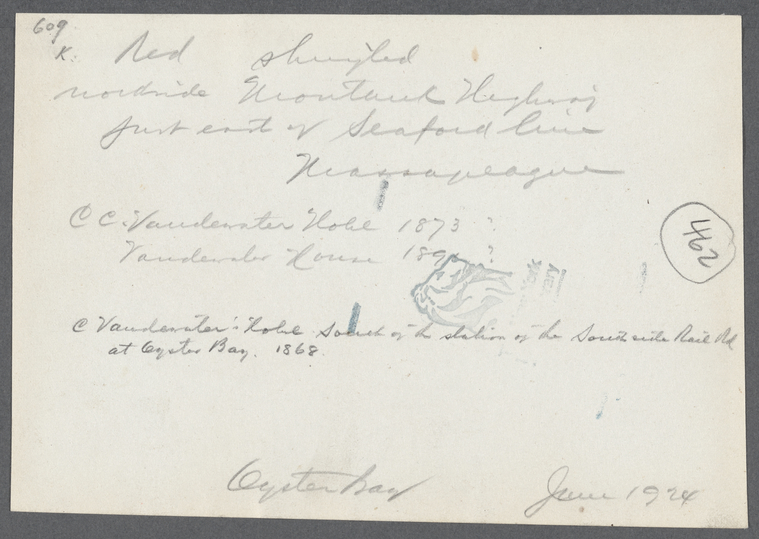 609
K. Red shingled
northside Montauk Highway
just east of Seaford line
Massapeague
462
C C. Vandewater Hotel 1873 ?
Vandewater House 189 ?
York
rary
C Vandewater's Hotel south of the station of the South side Rail Rd
at Oyster Bay. 1868.
Oyster Bay June 1924